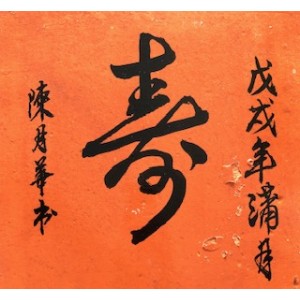 戊戌年蒲月
寿
陳月華书